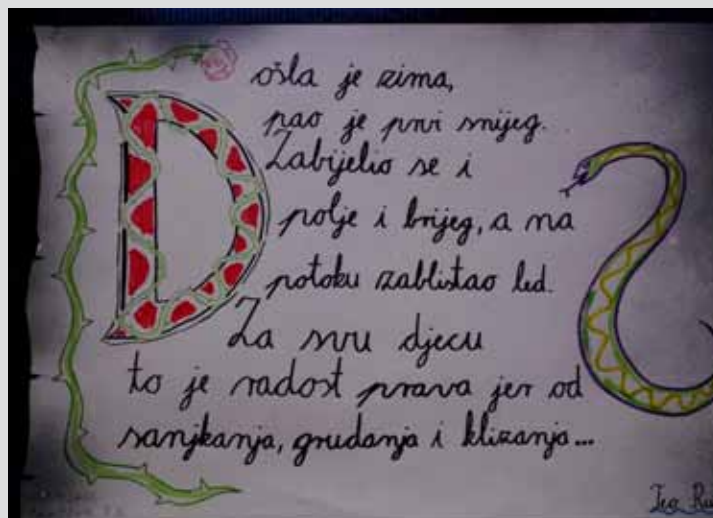 Došla je zima,
pao je prvi snijeg.
Zabijelio se i
polje i brijeg, a na
potoku zablistao led.
Za svu djecu
to je radost prava jer od
sanjkanja, grudanja i klizanja...
Tea